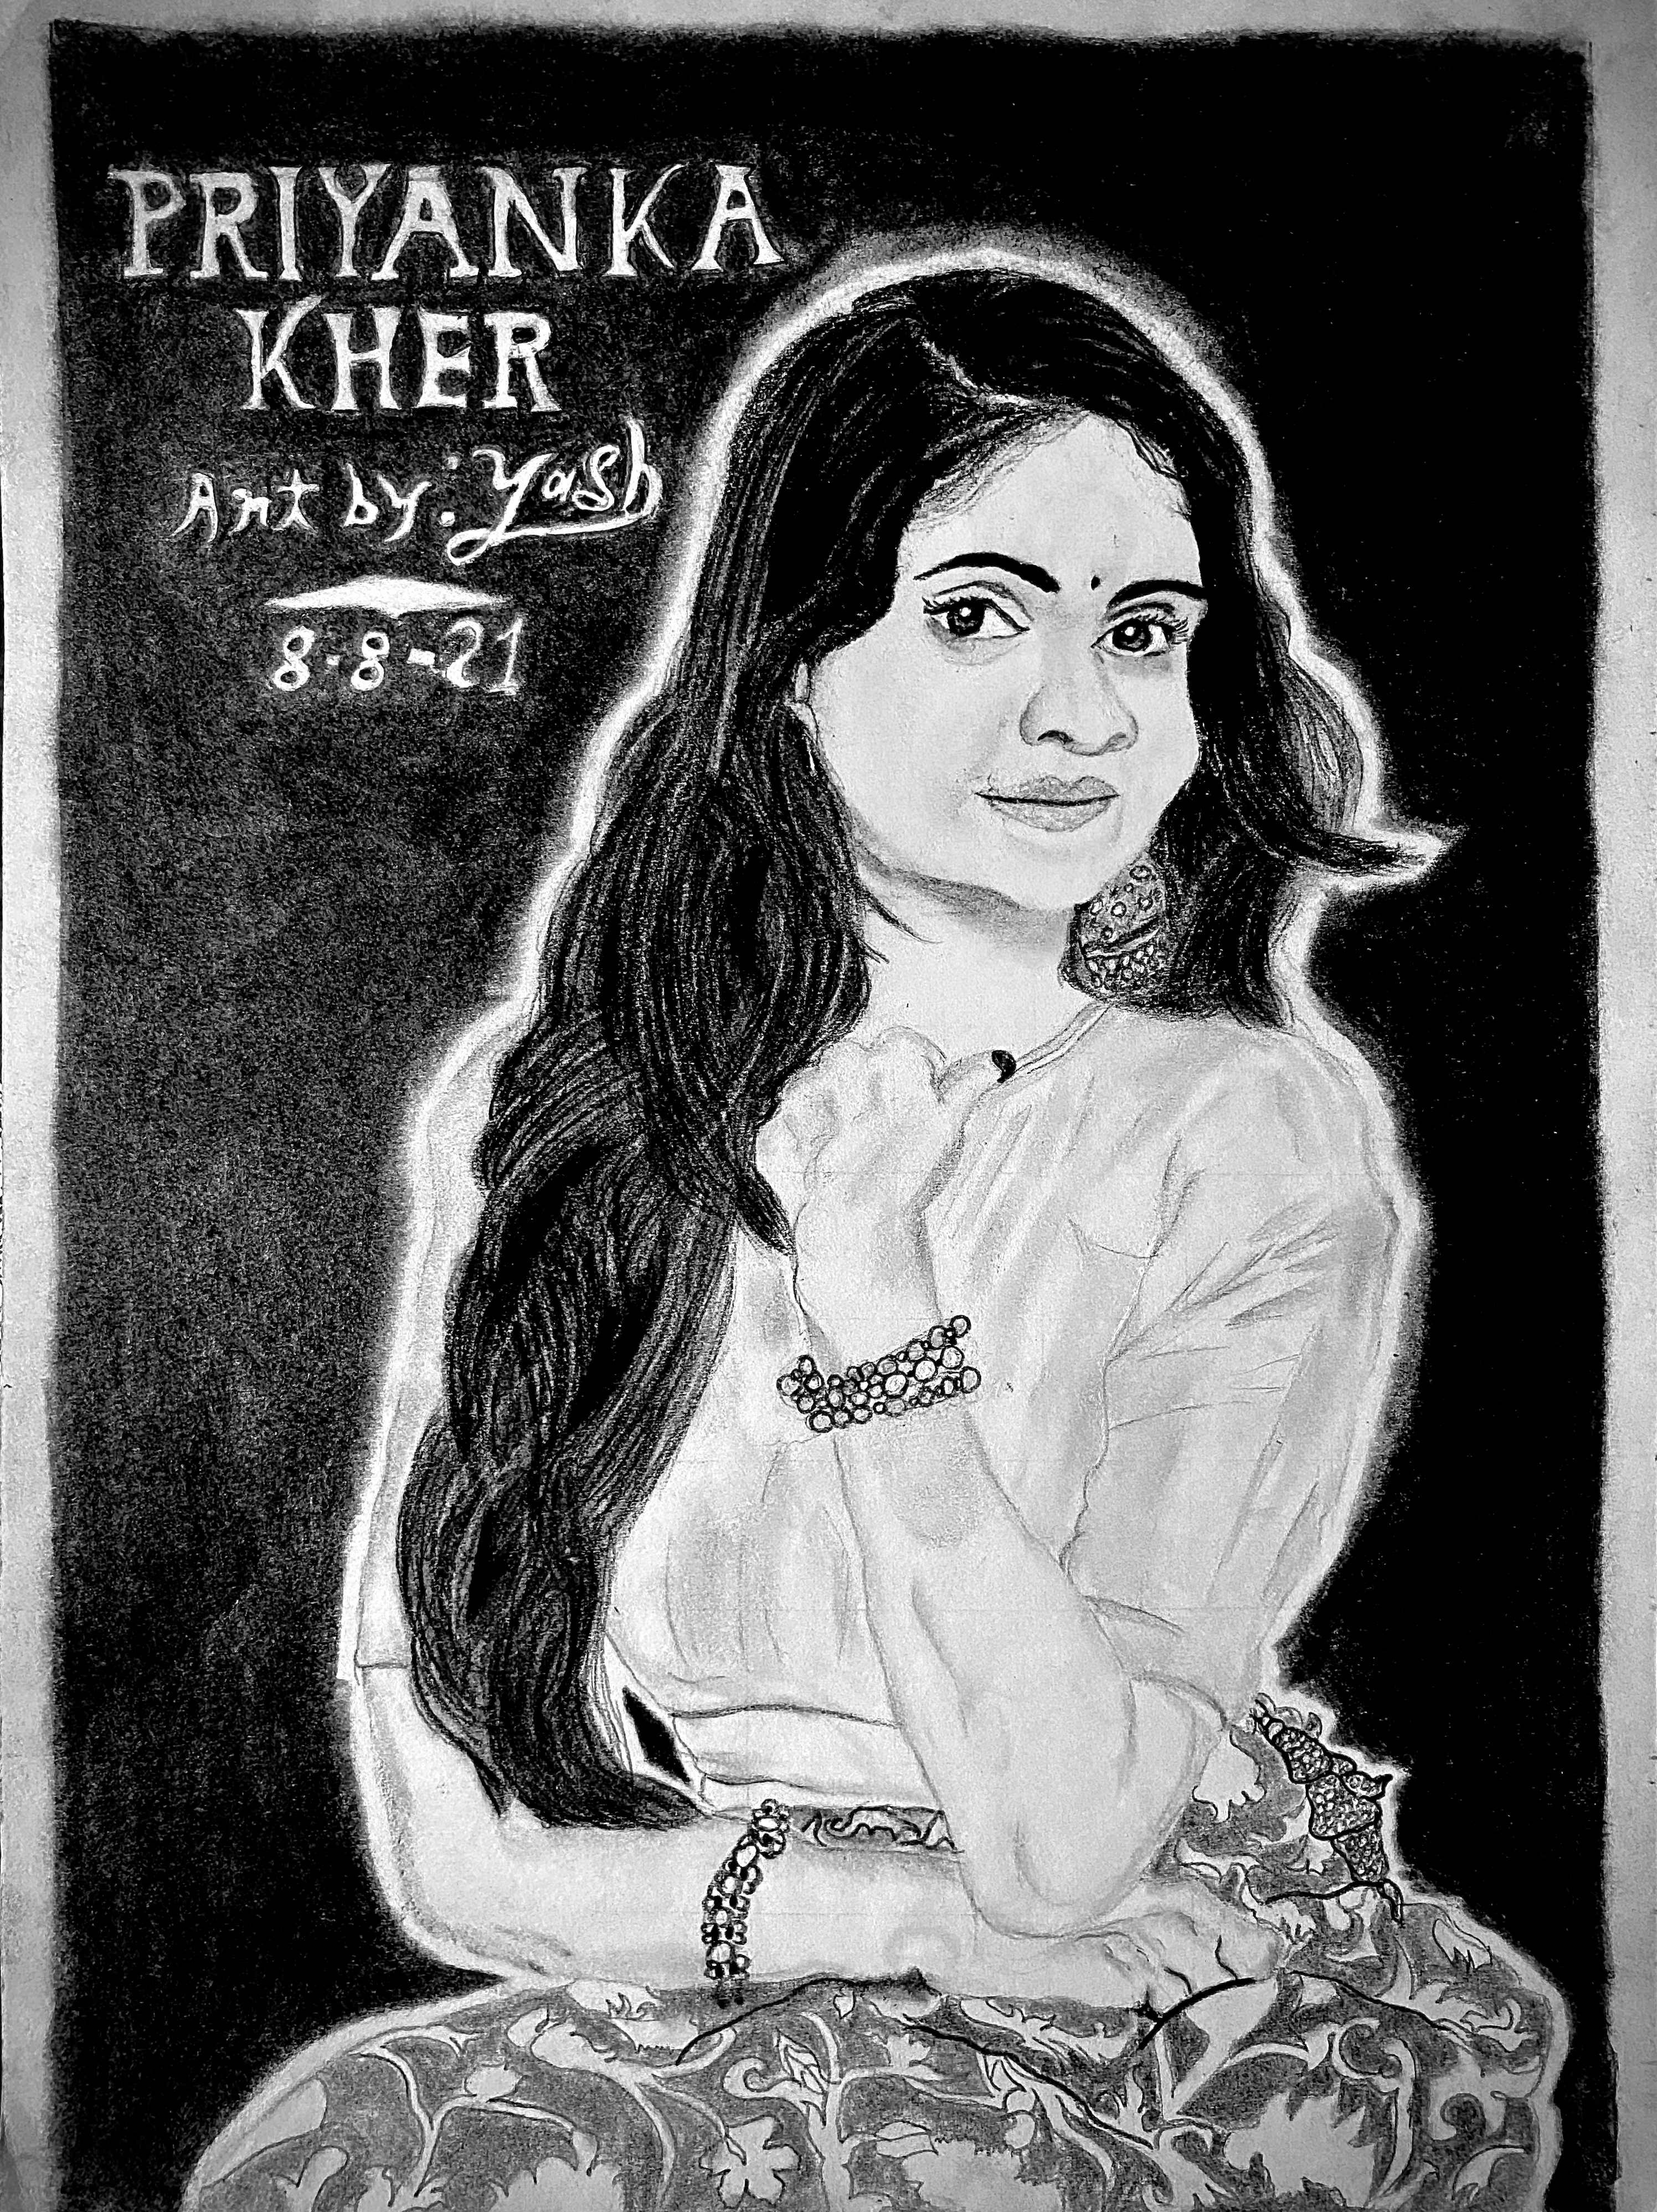 PRIYANKA
KHER
Art by: Yash
8-8-21